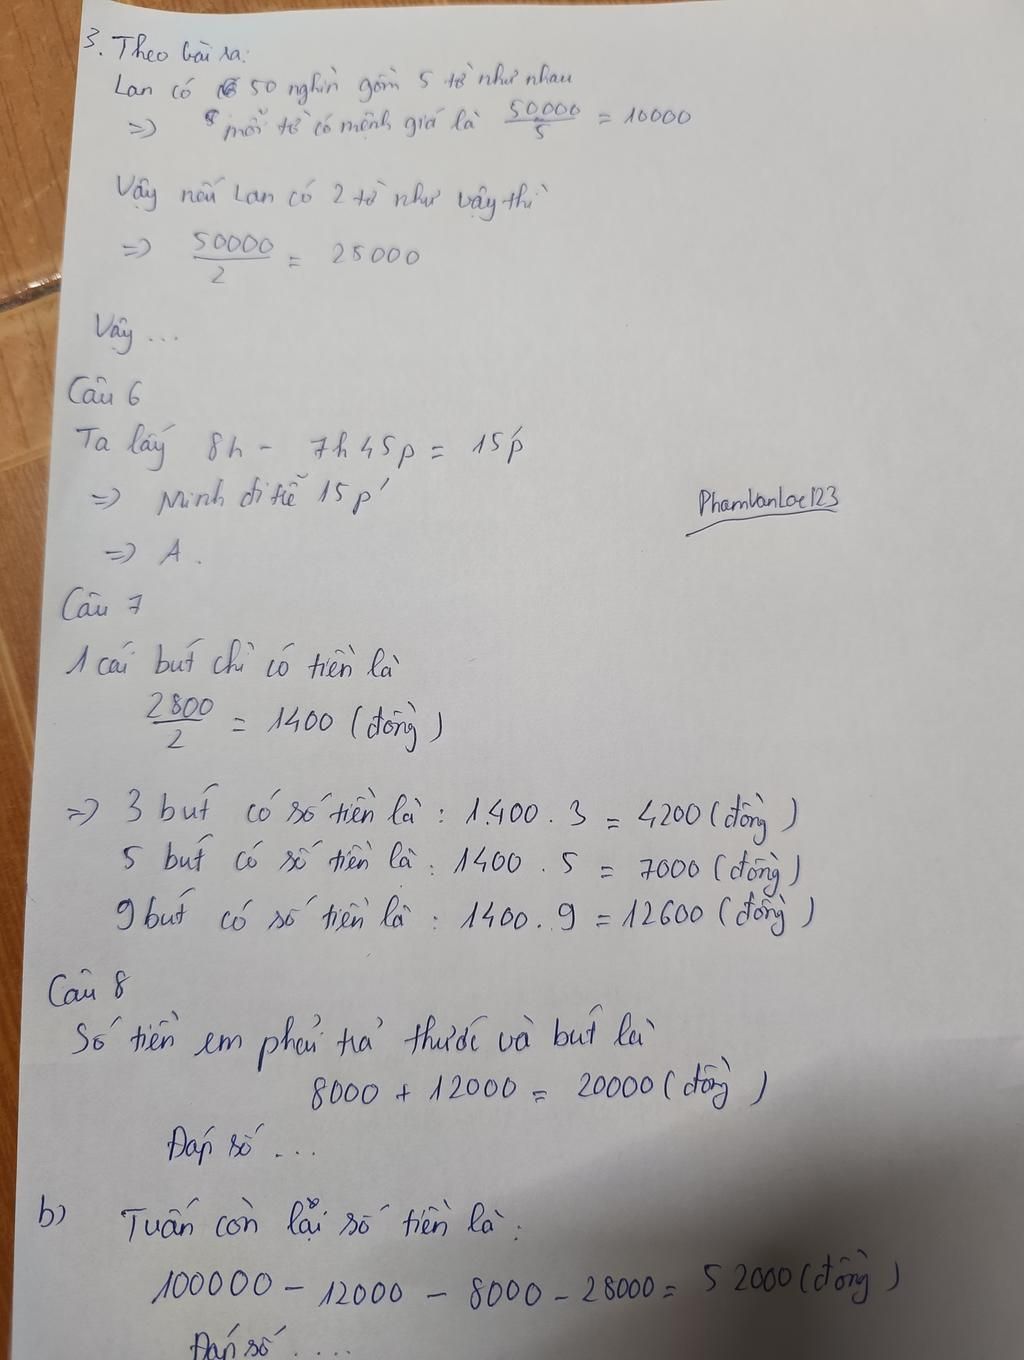 3. Theo bài ra:
Lan có 50 nghìn gồm 5 tờ như nhau
=> mỗi tờ có mệnh giá là 50000/5 = 10000
Vậy nếu Lan có 2 tờ như vậy thì
=> 50000/2 = 25000
Vậy ...
Câu 6
Ta lấy 8h - 7h45p = 15p
=> Minh đi trễ 15p
=> A.
PhamVanLoc123
Câu 7
1 cái bút chì có tiền là
2800/2 = 1400 (đồng)
=> 3 bút có số tiền là : 1.400 . 3 = 4200 (đồng)
5 bút có số tiền là : 1400 . 5 = 7000 (đồng)
9 bút có số tiền là : 1400 . 9 = 12600 (đồng)
Câu 8
Số tiền em phải trả thước và bút là
8000 + 12000 = 20000 (đồng)
Đáp số ...
b) Tuấn còn lại số tiền là :
100000 - 12000 - 8000 - 28000 = 52000 (đồng)
Đáp số ....